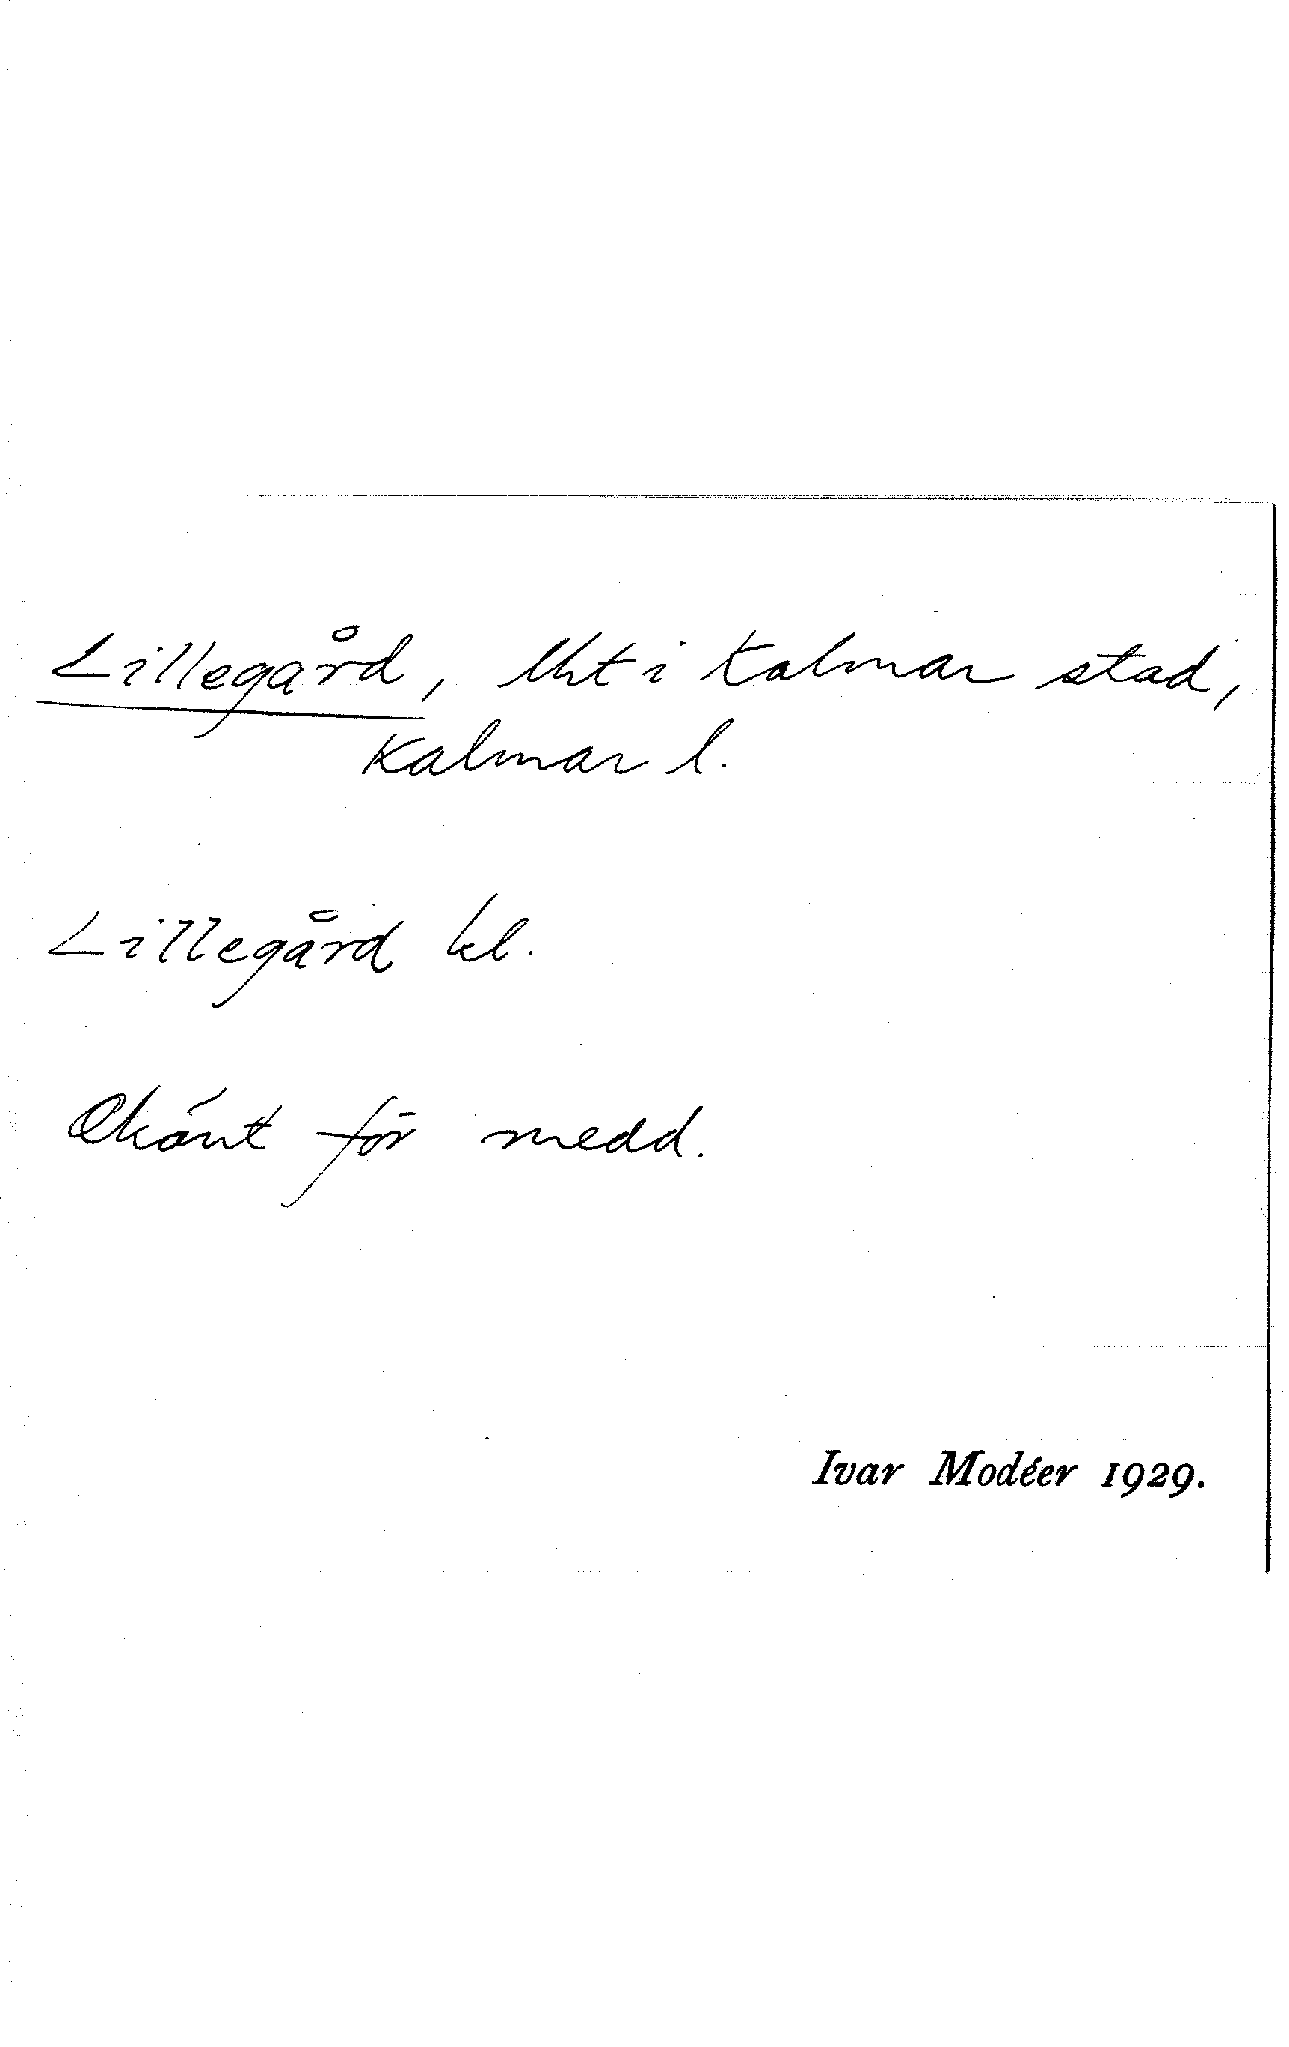 Lillegård, lht i Kalmar stad,
Kalmar l.
Lillegård kl.
Okänt för medd.
Ivar Modéer 1929.